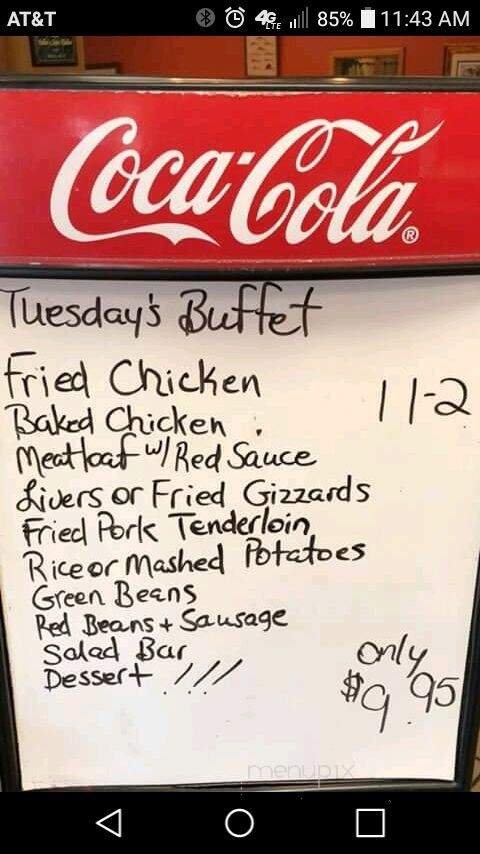 AT&T 4G LTE 85% 11:43 AM
Coca-Cola®
Tuesday's Buffet
Fried Chicken
11-2
Baked Chicken
Meatloaf w/ Red Sauce
Livers or Fried Gizzards
Fried Pork Tenderloin
Rice or Mashed Potatoes
Green Beans
Red Beans + Sausage
Salad Bar
Dessert !!!
only
$9.95
menupix